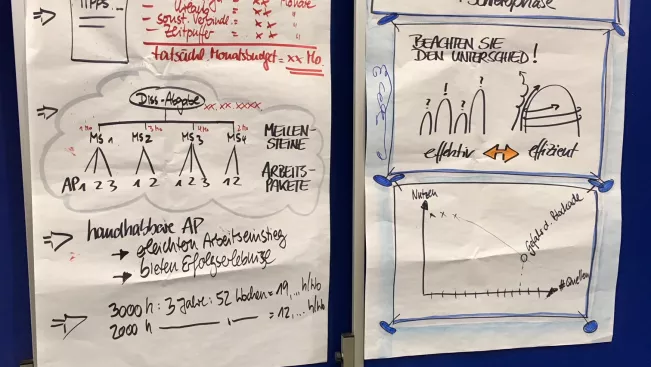 TIPPS...
Monate
Urlaub
xx "
- sonst. Verbindl.
xx "
- Zeitpuffer
xx "
tatsächl. Monatsbudget = xx Mo.
Diss-Abgabe
xx.xx.xxxx
1 Mo
3 Mo
4 Mo
2 Mo
MS 1
MS 2
MS 3
MS 4
MEILEN-
STEINE
AP 1 2 3
1 2
1 2 3
1 2
ARBEITS-
PAKETE
handhabbare AP
→ erleichtern Arbeitseinstieg
→ bieten Erfolgserlebnisse
3000 h : 3 Jahre : 52 Wochen = 19,... h/Wo
2000 h = 12,... h/Wo
BEACHTEN SIE
DEN UNTERSCHIED!
? ! ? ?
effektiv
effizient
Nutzen
x x x
Gefahr d. Blockade
# Quellen